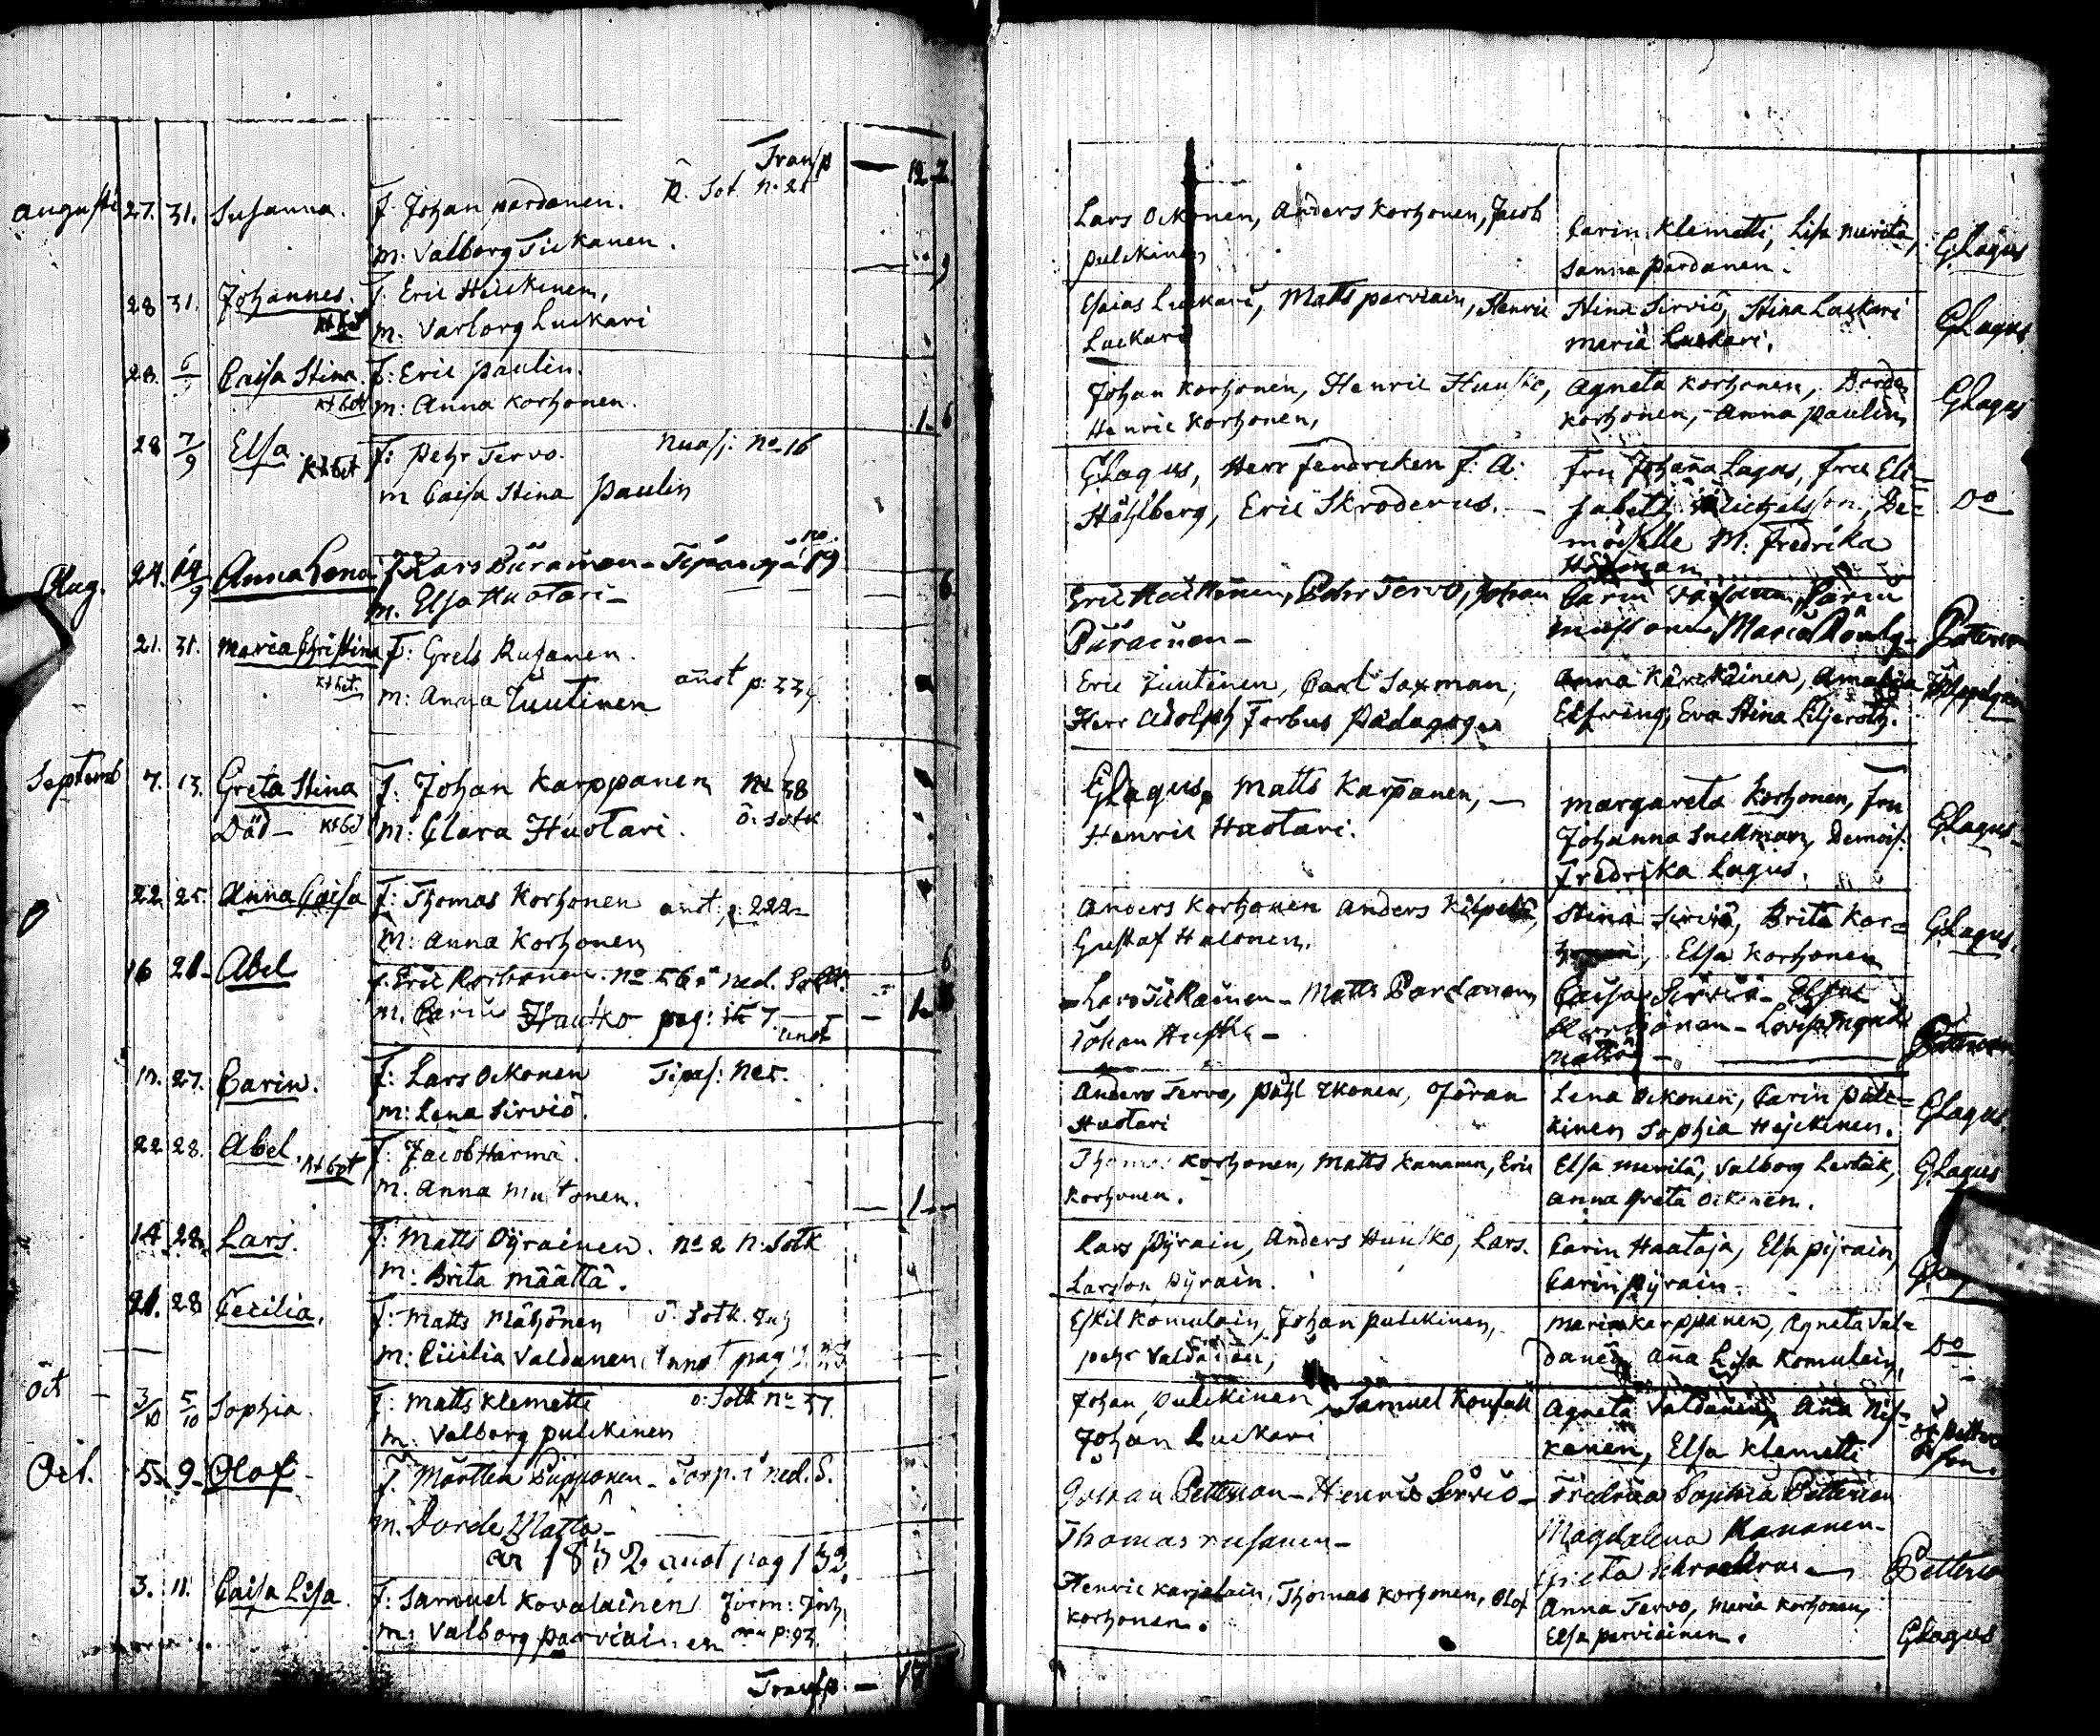 Transp — 12 2
Augusti 27. 31. Susanna. F: Johan pardanen. N. Sot. No 21
m: Valborg Tickanen.
28 31. Johannes. F: Eric Heickinen,
Kt bet m. Varborg Luckari
28. 6 Caisa Stina. F: Eric paulin.
Kt bet m: Anna Korhonen. 1 6
28 7/9 Elsa. F: pehr Tervo. Nuasj: No 16
Kt bet m Caisa Stina paulin
Aug. 24. 14/9 Anna Lena F. Lars Puramen - Tipasoja No. 19
m. Elsa Huotari - 6
21. 31. Maria Christina F: Grels Rusanen.
Kt bet. m: Anna Juutinen anot p: 334
Septemb 7. 13. Greta Stina F. Johan Karppanen No 38
Död - Kt bet m: Clara Huotari. ö: Sotk
22. 25. Anna Caisa F: Thomas Korhonen anot: p: 222
m: Anna Korhonen
16 21 - Abel f. Eric Korhonen. No 56 i ned. Sotk. 6
m. Carin Huusko pag: 7. anot 1
27. Carin. F: Lars Ockonen Tipas: No 5.
m: Lena Sirviö.
22 28. Abel. F: Jacob Härmä.
Kt bet m. Anna Mustonen. 1
14 28. Lars. F: Matts Pyrainen. No 2 N: Sotk
m: Brita Määttä.
21. 28 Cecilia. F: Matts Mähönen Ö. Sotk.
m: Cicilia Valdanen, Annot pag
Oct 3/10 5/10 Sophia. F: Matts Klemetti ö: Sotk No 37.
m. Valborg pulckinen
Oct. 5. 9. Olof - F. Mårtten Piipponen - Torp. i ned. S.
m. Dorde Mättä -
år 1832 anot pag 152
3. 11. Caisa Lisa F: Samuel Kovalainen Jorm:
m: Valborg parviainen p: 93.
Transp. — 17
Lars Ockonen, Anders Korhonen, Jacob
pulckinen
Carin Klemetti, Lisa Merita,
Sanna pardanen.
GLagus
Esaias Luckari, Matts parviain, Henric
Luckari
Stina Sirviö, Stina Luckari
Maria Luckari.
GLagus
Johan Korhonen, Henric Huusko,
Henric Korhonen,
Agneta Korhonen, Dorde
Korhonen, Anna paulin
GLagus
GLagus, Herr Fendricken F: A:
Ståhlberg, Eric Skroderus. —
Fru Johanna Lagus, Fru Eli=
sabeth Michelsson, De=
moiselle M: Fredrika
Do
Eric Heickinen, Pehr Tervo, Johan
Puramen -
Carin
Mustonen Maria
Petterson
Eric Juutinen, Carl Saxman,
Herr Adolph Forbus Pädagoge
Anna Kärckäinen, Amalia
Elfving, Eva Stina Liljeroth.
GLagus, Matts Karpanen, —
Henric Huotari.
Margareta Korhonen, Fru
Johanna Snellman, Demois:
Fredrika Lagus.
GLagus
Anders Korhonen Anders Kilpeläi,
Gustaf Halonen.
Stina Sirviö, Brita Kor=
honen, Elsa Korhonen
GLagus.
Lars Tickainen - Matts Pardanen,
Johan Huusko -
Caisa Sirviö - Elsa
Korhonen - Lovisa
Mättä -
Petterson
Anders Tervo, påhl Ikonen, Jöran
Huotari
Lena Ockonen, Carin pulc=
kinen Sophia Hejckinen.
GLagus.
Thomas Korhonen, Matts Kananen, Eric
Korhonen.
Elsa Merilä, Valborg Lertick,
Anna Greta Ockonen.
GLagus
Lars Pyrain, Anders Huusko, Lars.
Larsson Pyrain.
Carin Haataja, Elsa pyrain,
Carin pyrain.
Eskil Komulain, Johan pulckinen,
pehr Valdanen,
Maria Karppanen, Agneta Val=
danen, Anna Lisa Komulain,
Do
Johan Pulckinen, Samuel
Johan Luckari
Agneta Valdanen, Anna His=
kanen, Elsa Klemetti
of Petter
son.
Johan Petterson - Henric Sirviö -
Thomas Rusanen -
Fredrica Sophia Petterson
Magdalena Kananen -
Greta Schroderus
Petterson
Henric Karjalain, Thomas Korhonen, Olof
Korhonen.
Anna Tervo, Maria Korhonen,
Elsa parviainen.
GLagus